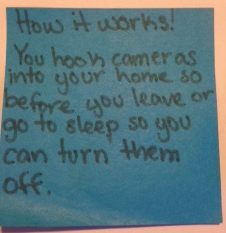 How it works!
You hook cameras
into your home so
before you leave or
go to sleep so you
can turn them
off.